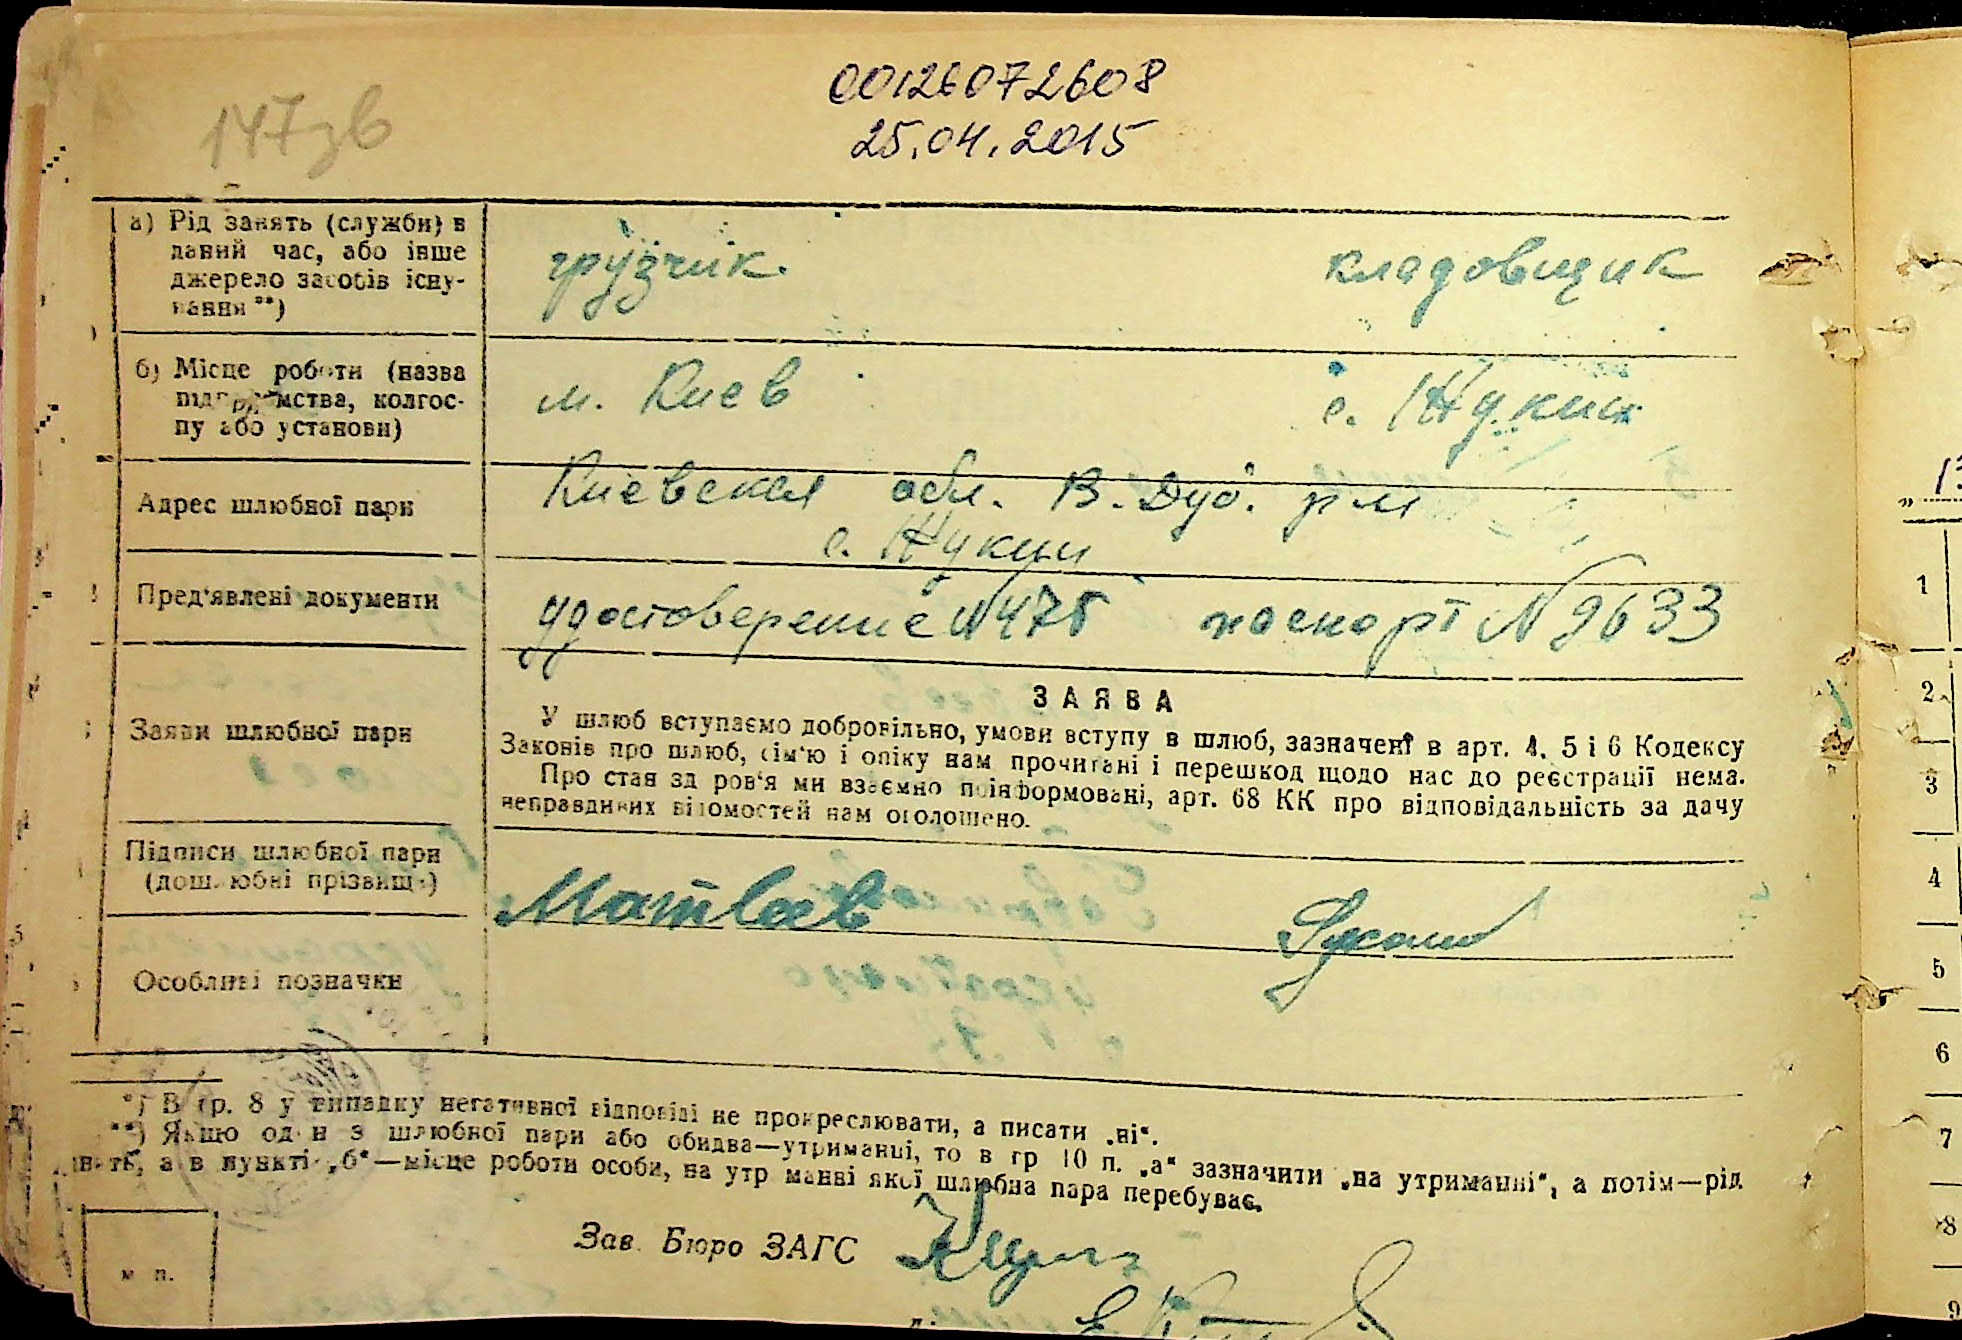 147зв
00126072608
25.04.2015
а) Рід занять (служби) в
даний час, або інше
джерело засобів існу-
вання **)
грузчик.
кладовщик
б) Місце роботи (назва
підприємства, колгос-
пу або установи)
м. Киев
с. Жукин
Адрес шлюбної пари
Киевская обл. В. Дуб. р-н
с. Жукин
Пред'явлені документи
удостоверение N 475
паспорт N 9633
Заяви шлюбної пари
ЗАЯВА
У шлюб вступаємо добровільно, умови вступу в шлюб, зазначені в арт. 4, 5 і 6 Кодексу
Законів про шлюб, сім'ю і опіку нам прочитані і перешкод щодо нас до реєстрації нема.
Про стан здоров'я ми взаємно поінформовані, арт. 68 КК про відповідальність за дачу
неправдивих відомостей нам оголошено.
Підписи шлюбної пари
(дошлюбні прізвища)
Матвеев
Особливі позначки
*) В гр. 8 у випадку негативної відповіді не прокреслювати, а писати „ні“.
**) Якщо один з шлюбної пари або обидва—утриманці, то в гр 10 п. „а“ зазначити „на утриманні“, а потім—рід
занять, а в пункті „б“—місце роботи особи, на утриманні якої шлюбна пара перебуває.
Зав. Бюро ЗАГС
м п.
„13
1
2
3
4
5
6
7
8
9